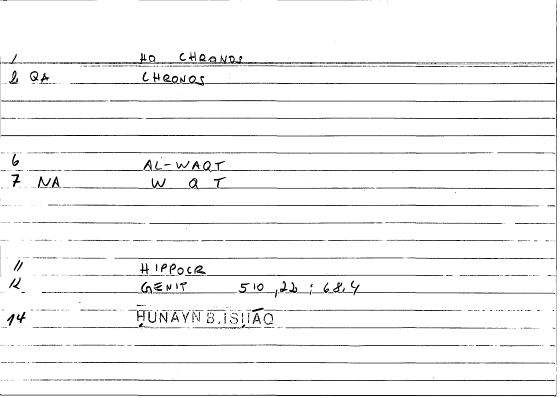 1 HO CHRONOS
2 QA CHRONOS
6 AL-WAQT
7 NA W Q T
11 HIPPOCR
12 GENIT 510,22 ; 68.4
14 ḤUNAYN B.ISḤĀQ